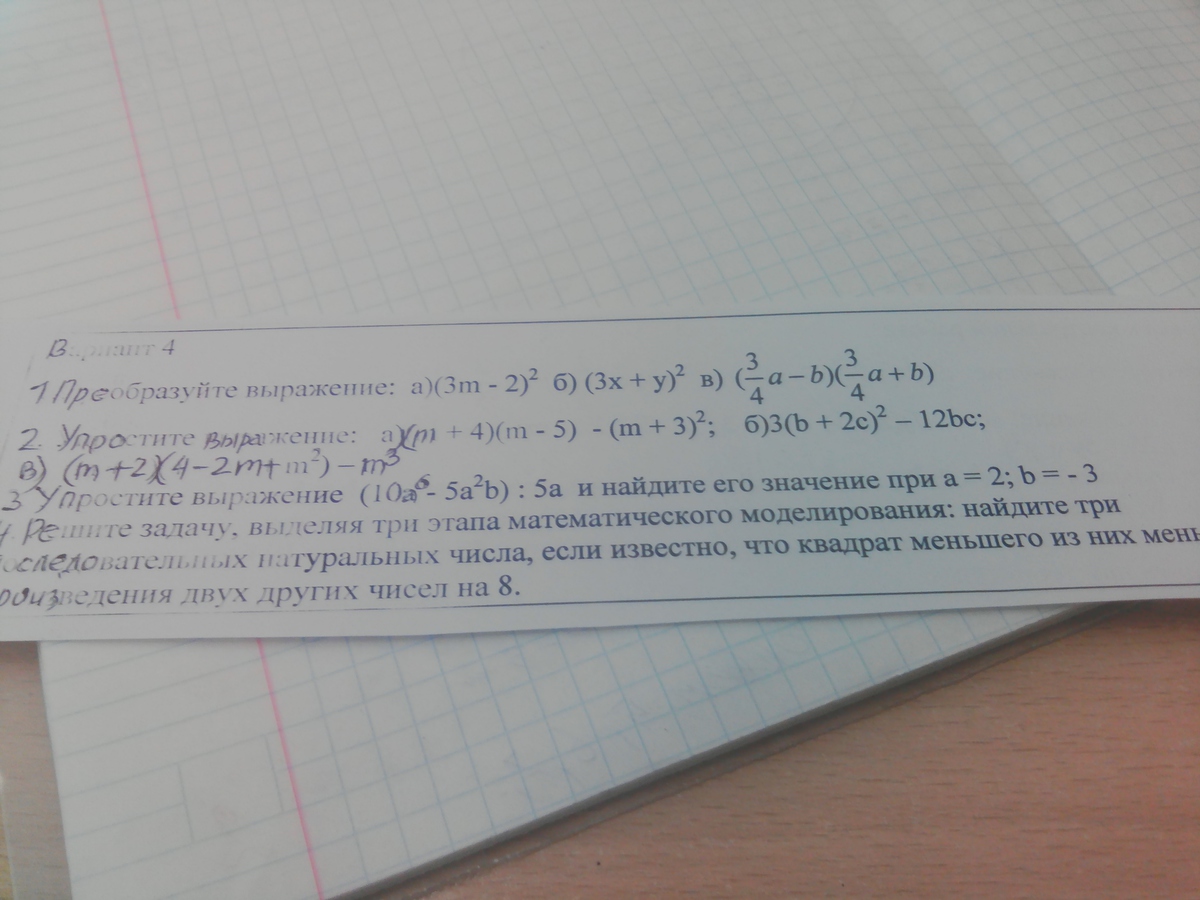 Вариант 4
1 Преобразуйте выражение: а)(3m - 2)² б) (3x + y)² в) (3/4 a – b)(3/4 a + b)
2. Упростите выражение: а)(m + 4)(m - 5) - (m + 3)²; б)3(b + 2c)² – 12bc;
в) (m+2)(4-2m+m²) – m³
3 Упростите выражение (10a⁶ - 5a²b) : 5a и найдите его значение при a = 2; b = - 3
4. Решите задачу, выделяя три этапа математического моделирования: найдите три
оследовательных натуральных числа, если известно, что квадрат меньшего из них мень
оизведения двух других чисел на 8.